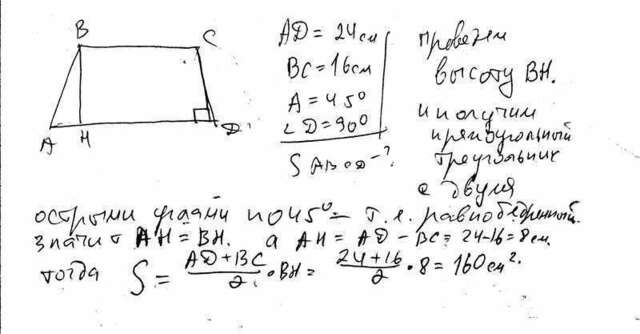 B C
A H D
AD = 24 см
BC = 16 см
A = 45°
∠D = 90°
S ABCD - ?
проведем
высоту BH.
и получим
прямоугольный
треугольник
с двумя
острыми углами по 45° - т.е. равнобедренный.
значит AH = BH. а AH = AD - BC = 24-16 = 8 см.
тогда S = (AD + BC)/2 · BH = (24+16)/2 · 8 = 160 см².